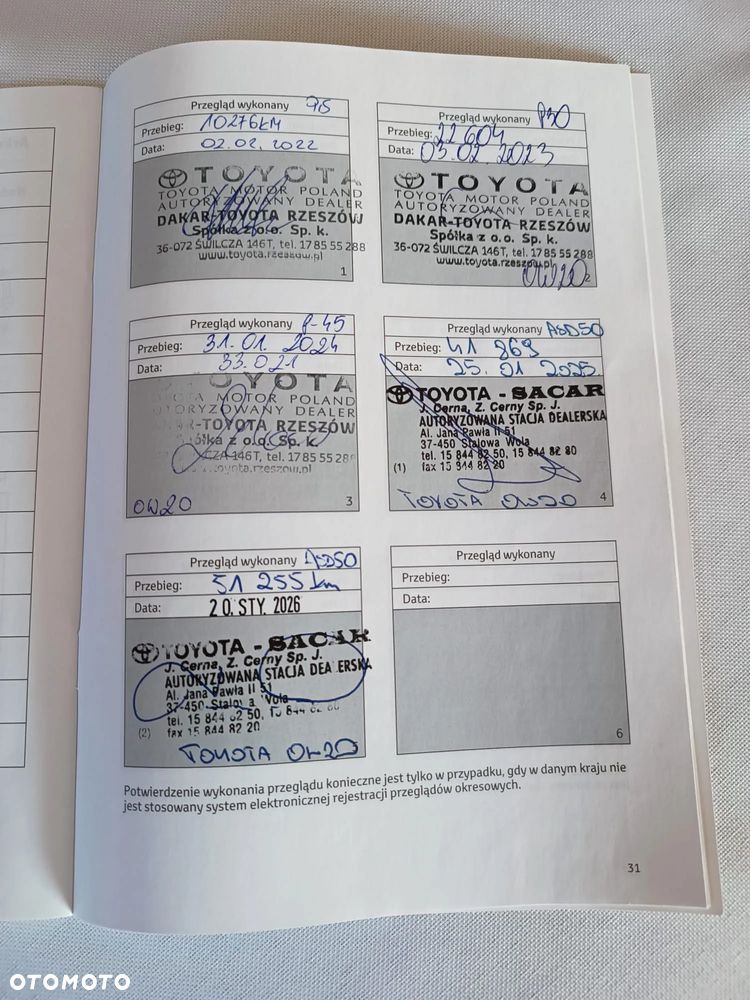 Przegląd wykonany
Przebieg: 10276KM
Data: 02.02.2022
TOYOTA
TOYOTA MOTOR POLAND
AUTORYZOWANY DEALER
DAKAR-TOYOTA RZESZÓW
Spółka z o.o. Sp. k.
36-072 ŚWILCZA 146T, tel. 17 85 55 288
www.toyota.rzeszow.pl
1
Przegląd wykonany P30
Przebieg: 22604
Data: 03.02.2023
TOYOTA
TOYOTA MOTOR POLAND
AUTORYZOWANY DEALER
DAKAR-TOYOTA RZESZÓW
Spółka z o.o. Sp. k.
36-072 ŚWILCZA 146T, tel. 17 85 55 288
www.toyota.rzeszow.pl
0W20
2
Przegląd wykonany P-45
Przebieg: 31.01.2024
Data: 33.021
TOYOTA
TOYOTA MOTOR POLAND
AUTORYZOWANY DEALER
DAKAR-TOYOTA RZESZÓW
Spółka z o.o. Sp. k.
ŚWILCZA 146T, tel. 17 85 55 28
toyota.rzeszow.pl
0W20
3
Przegląd wykonany ASD50
Przebieg: 41 869
Data: 25.01 2025
TOYOTA - SACAR
Cerna, Z. Cerny Sp. J.
AUTORYZOWANA STACJA DEALERSKA
Al. Jana Pawła II 51
37-450 Stalowa Wola
tel. 15 844 82 50, 15 844 82 80
(1) fax 15 844 82 20
TOYOTA 0W20
4
Przegląd wykonany ASD50
Przebieg: 51 255 km
Data: 20. STY. 2026
TOYOTA - SACAR
J. Cerna, Z. Cerny Sp. J.
AUTORYZOWANA STACJA DEALERSKA
Al. Jana Pawła II 51
37-450 Stalowa Wola
tel. 15 844 82 50, 15 844 82 80
(2) fax 15 844 82 20
TOYOTA 0W20
Przegląd wykonany
Przebieg:
Data:
6
Potwierdzenie wykonania przeglądu konieczne jest tylko w przypadku, gdy w danym kraju nie
jest stosowany system elektronicznej rejestracji przeglądów okresowych.
31
OTOMOTO